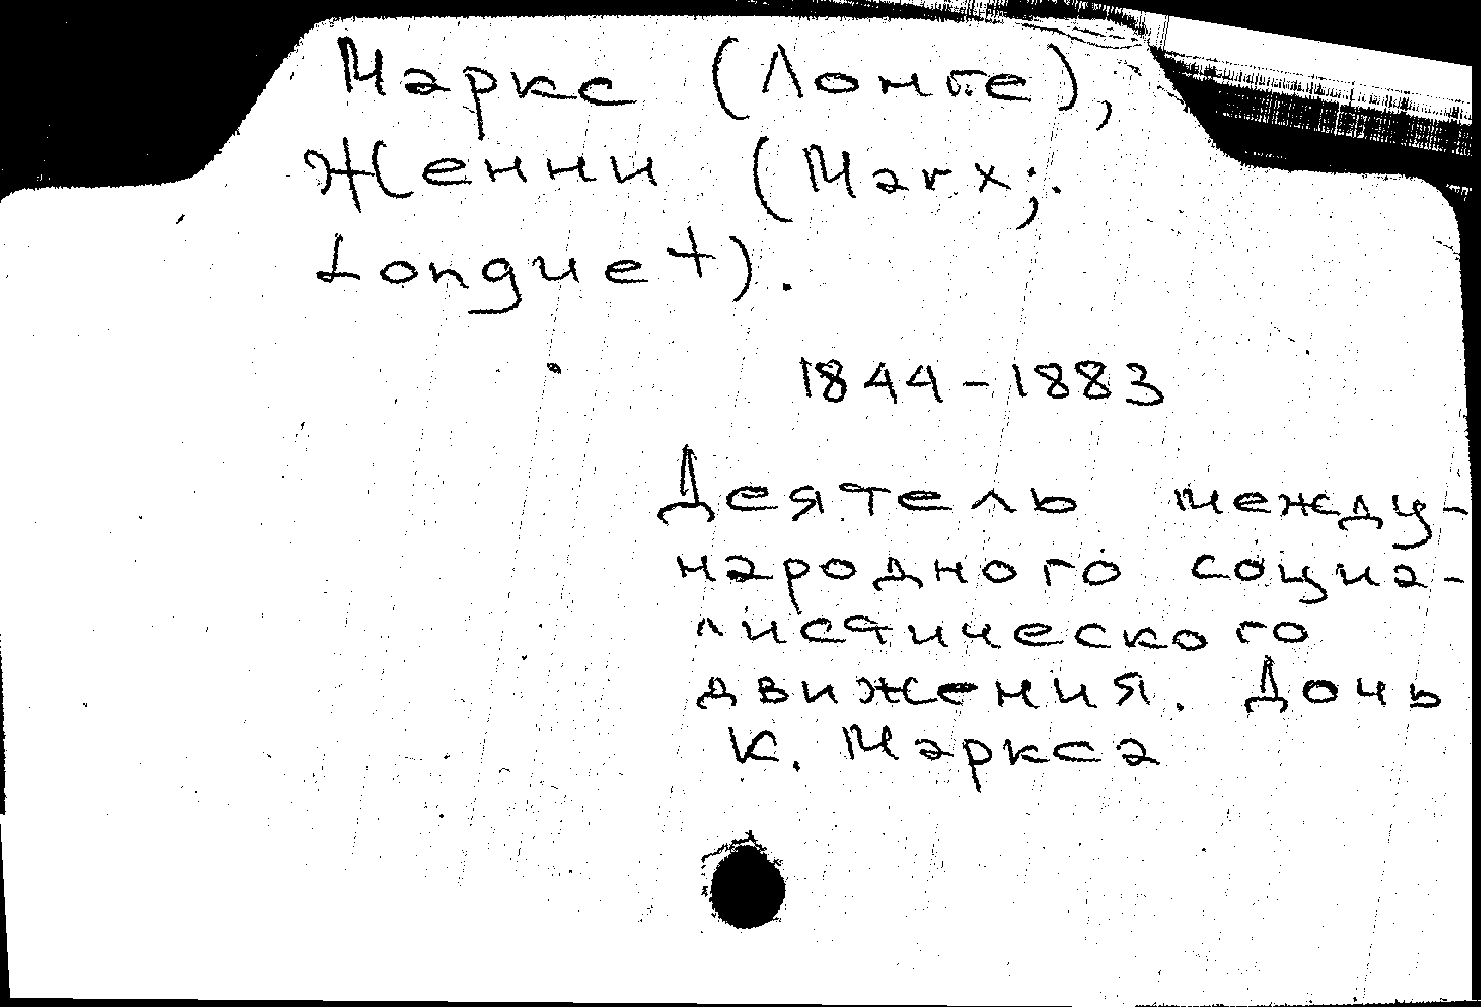 Маркс (Лонге),
Женни (Marx;
Longuet).
1844-1883
Деятель между-
народного социа-
листического
движения. Дочь
К. Маркса